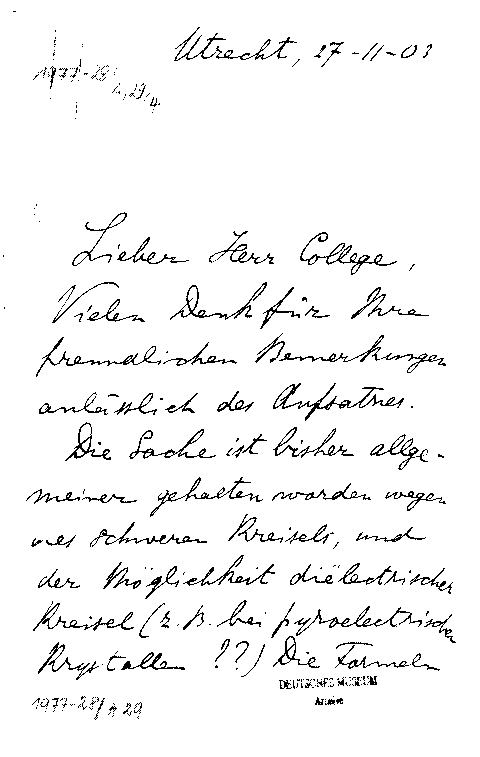 Utrecht, 27-11-03
1977-28/A,29/4
Lieber Herr College,
Vielen Dank für Ihre
freundlichen Bemerkungen
anlässlich des Aufsatzes.
Die Sache ist bisher allge-
meiner gehalten worden wegen
des schweren Kreisels, und
der Möglichkeit diëlectrischer
Kreisel (z.B. bei pyroelectrischen
Krystallen ??) Die Formeln
DEUTSCHES MUSEUM
Archive
1977-28/A 29